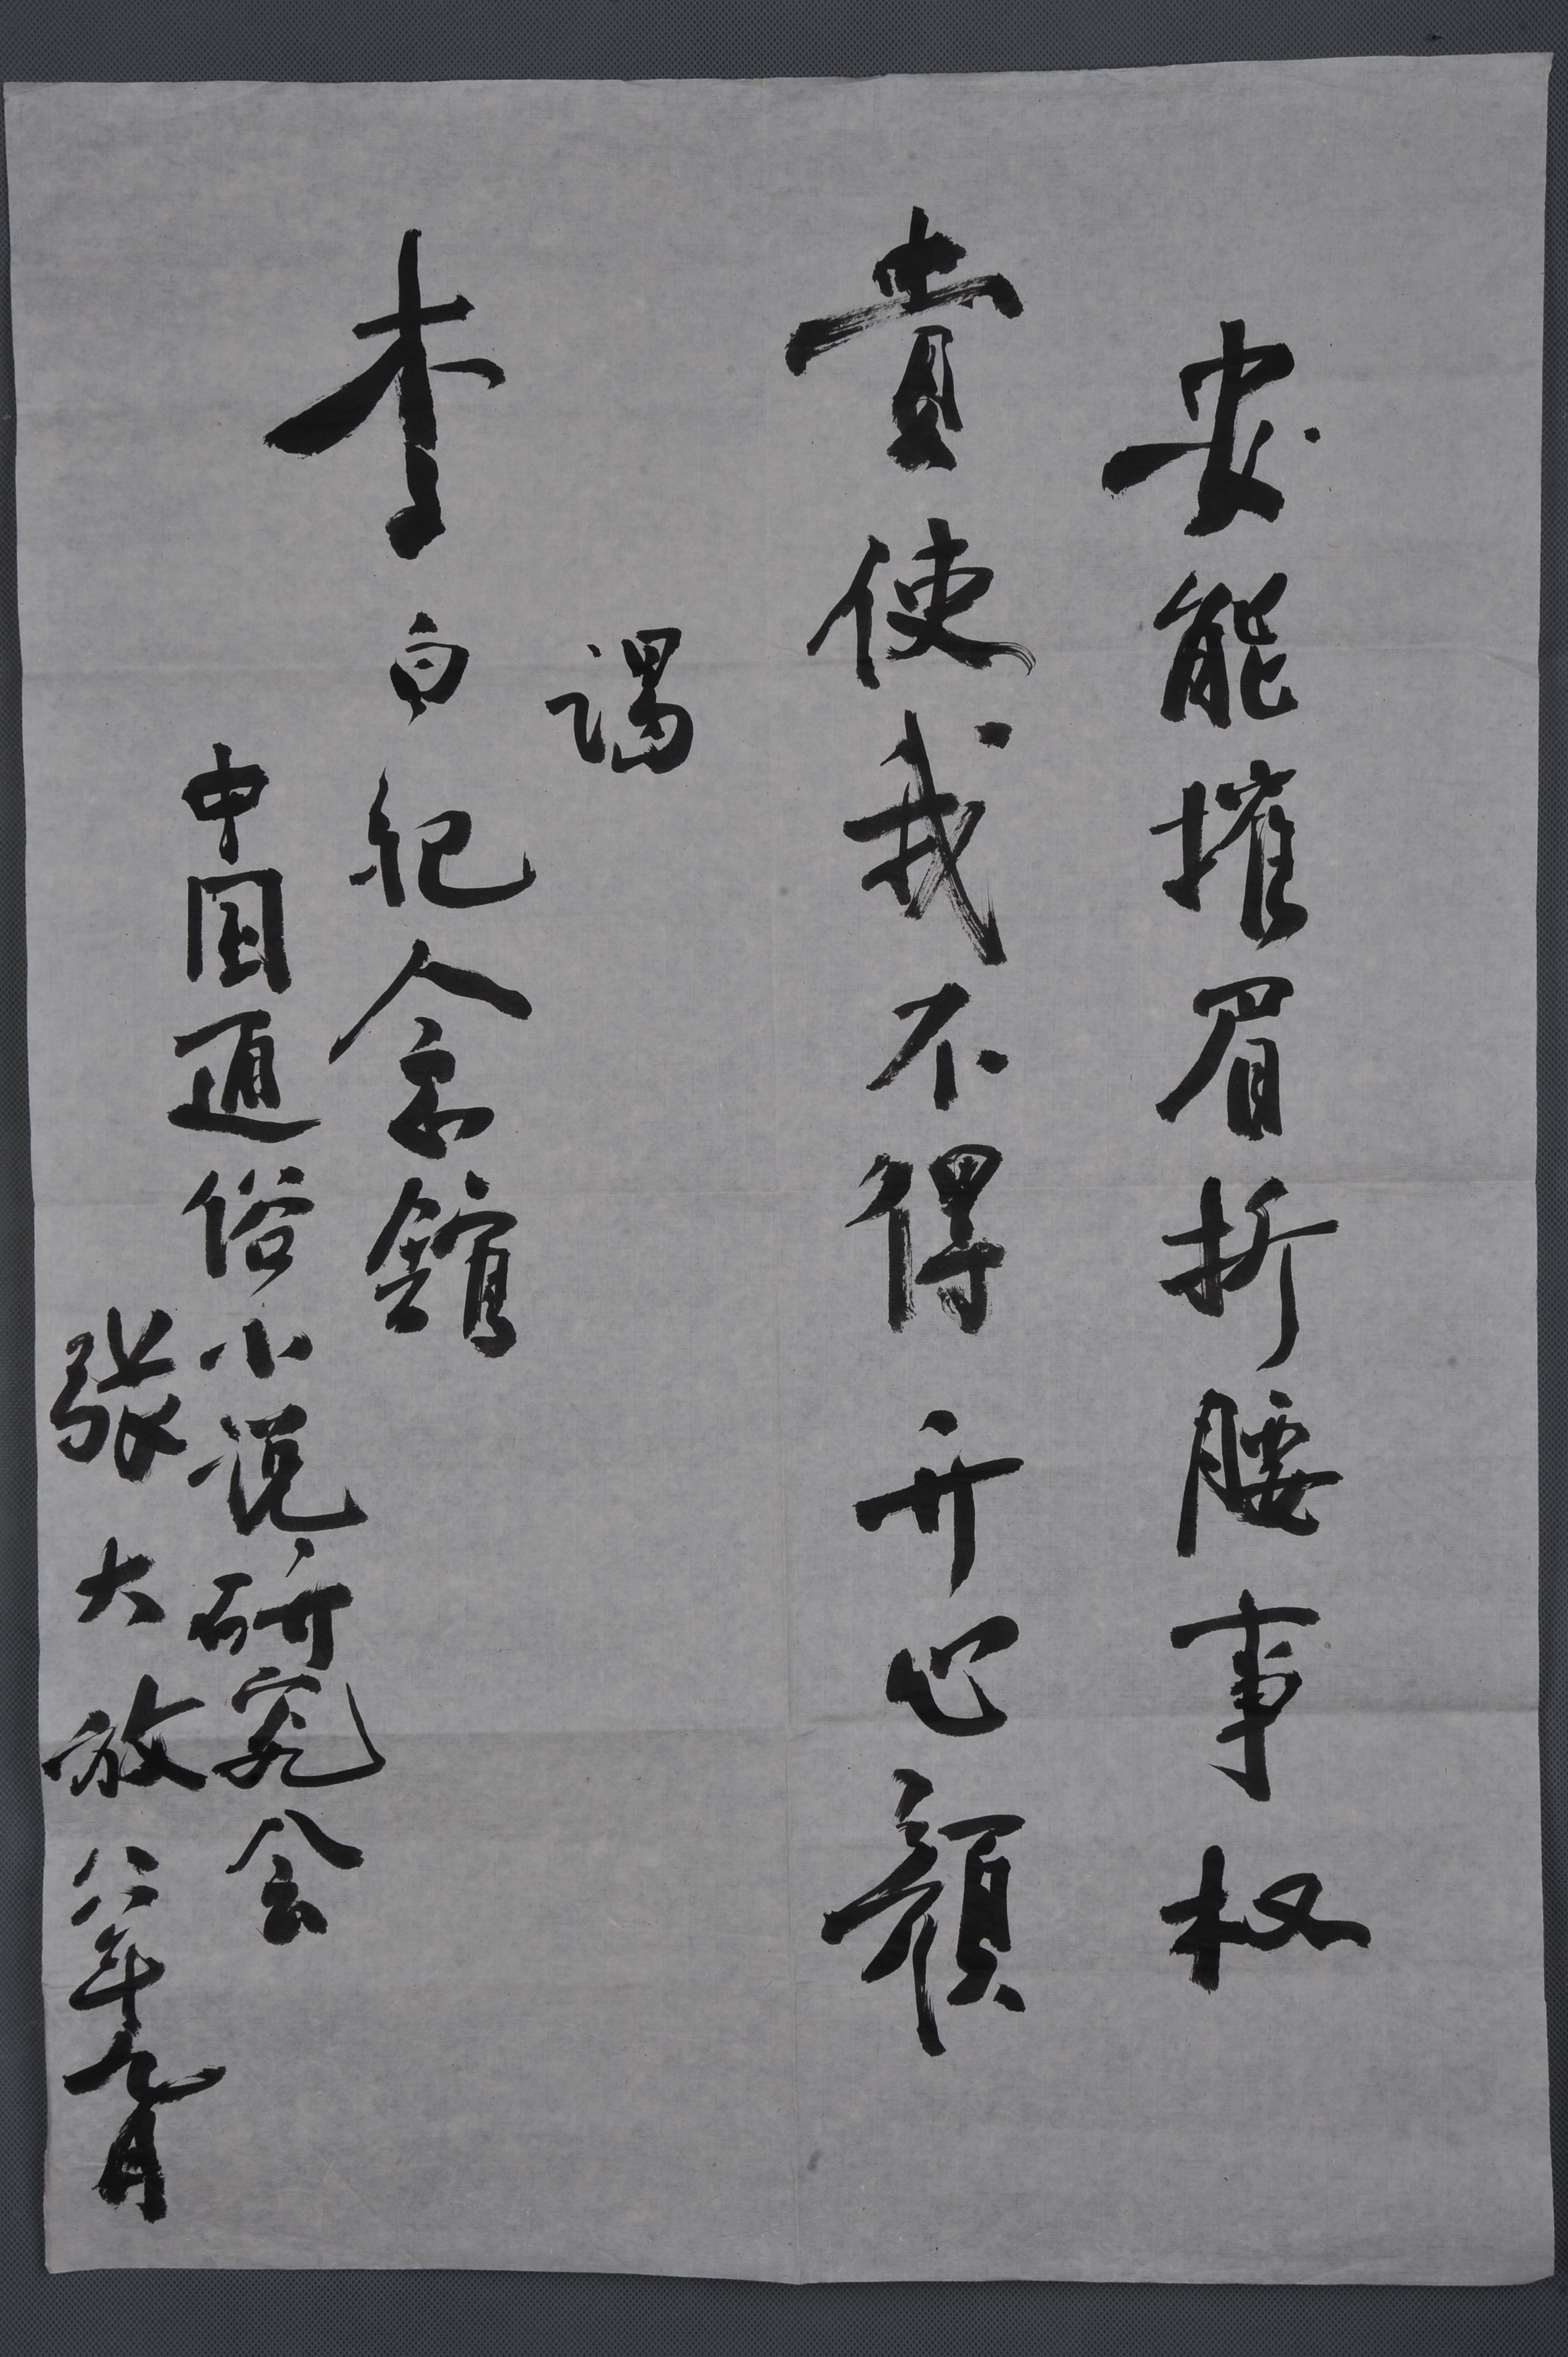 安能摧眉折腰事权
貴使我不得开心顔
谒
李白纪念舘
中国通俗小说研究会
張大放八八年九月